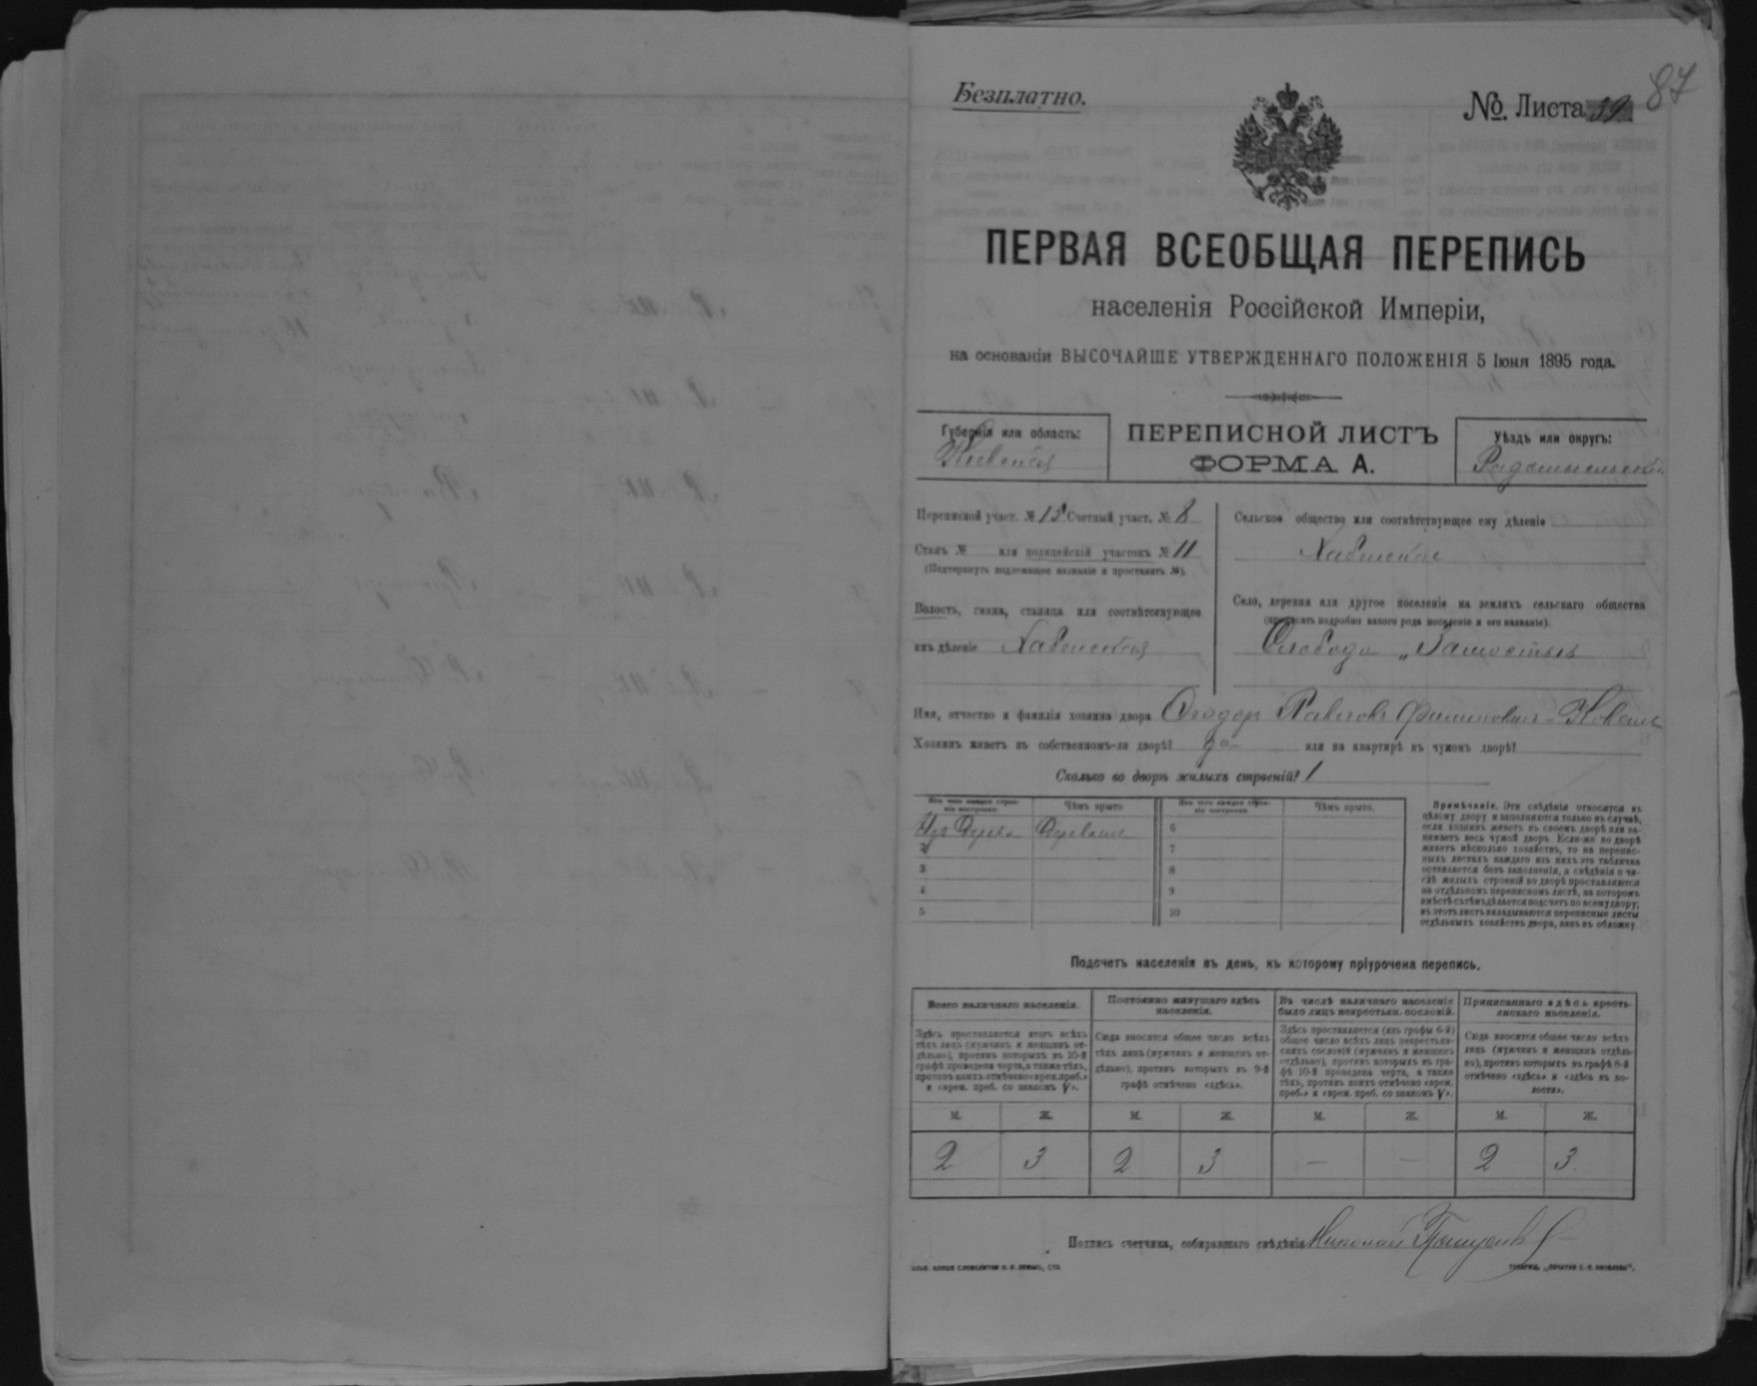 87
Безплатно.
№ Листа 39.
ПЕРВАЯ ВСЕОБЩАЯ ПЕРЕПИСЬ
населенія Россійской Имперіи,
на основаніи ВЫСОЧАЙШЕ УТВЕРЖДЕННАГО ПОЛОЖЕНІЯ 5 Іюня 1895 года.
Губернія или область:
Кіевская
ПЕРЕПИСНОЙ ЛИСТЪ
ФОРМА А.
Уѣздъ или округъ:
Радомысльскій
Переписной участ. № 15 Счетный участ. № 8
Станъ № или полицейскій участокъ № 11
(Подчеркнуть надлежащее названіе и проставить №).
Волость, гмина, станица или соотвѣтствующее
имъ дѣленіе Хабенская
Сельское общество или соотвѣтствующее ему дѣленіе
Хабенское
Село, деревня или другое поселеніе на земляхъ сельскаго общества
(прописать подробно какого рода поселеніе и его названіе).
Слобода „Замостье
Имя, отчество и фамилія хозяина двора Феодор Павловъ
Хозяинъ живетъ въ собственномъ-ли дворѣ? да или на квартирѣ въ чужомъ дворѣ?
Сколько во дворѣ жилыхъ строеній? 1
Изъ чего каждое строеніе построено: Чѣмъ крыто Изъ чего каждое строеніе построено: Чѣмъ крыто.
Изъ Дерева 6
2 7
3 8
4 9
5 10
Примѣчаніе. Эти свѣдѣнія относятся къ
цѣлому двору и заполняются только въ случаѣ,
если хозяинъ живетъ въ своемъ дворѣ или за-
нимаетъ весь чужой дворъ. Если-же во дворѣ
живетъ нѣсколько хозяйствъ, то на перепис-
ныхъ листахъ каждаго изъ нихъ эта табличка
оставляется безъ заполненія, а свѣдѣнія о чи-
слѣ жилыхъ строеній во дворѣ проставляются
на отдѣльномъ переписномъ листѣ, на которомъ
вмѣстѣ съ тѣмъ дѣлается подсчетъ по всему двору;
въ этотъ листъ вкладываются переписные листы
отдѣльныхъ хозяйствъ двора, какъ въ обложку.
Подсчетъ населенія въ день, къ которому пріурочена перепись.
Всего наличнаго населенія.
Здѣсь проставляется итогъ всѣхъ
тѣхъ лицъ (мужчинъ и женщинъ от-
дѣльно), противъ которыхъ въ 10-й
графѣ проведена черта, а также тѣхъ,
противъ коихъ отмѣчено «врем. преб.»
и «врем. преб. со знакомъ V».
Постоянно живущаго здѣсь
населенія.
Сюда вносится общее число всѣхъ
тѣхъ лицъ (мужчинъ и женщинъ от-
дѣльно), противъ которыхъ въ 9-й
графѣ отмѣчено «здѣсь».
Въ числѣ наличнаго населенія
было лицъ некрестьян. сословій.
Здѣсь проставляется (изъ графы 6-й)
общее число всѣхъ лицъ некрестьян-
скихъ сословій (мужчинъ и женщинъ
отдѣльно), противъ которыхъ въ гра-
фѣ 10-й проведена черта, а также
тѣхъ, противъ коихъ отмѣчено «врем.
преб.» и «врем. преб. со знакомъ V».
Приписаннаго здѣсь кресть-
янскаго населенія.
Сюда вносится общее число всѣхъ
лицъ (мужчинъ и женщинъ отдѣль-
но), противъ которыхъ въ графѣ 8-й
отмѣчено «здѣсь» и «здѣсь въ во-
лости».
М. Ж. М. Ж. М. Ж. М. Ж.
2 3 2 3 — — 2 3
Подпись счетчика, собиравшаго свѣдѣнія Николай